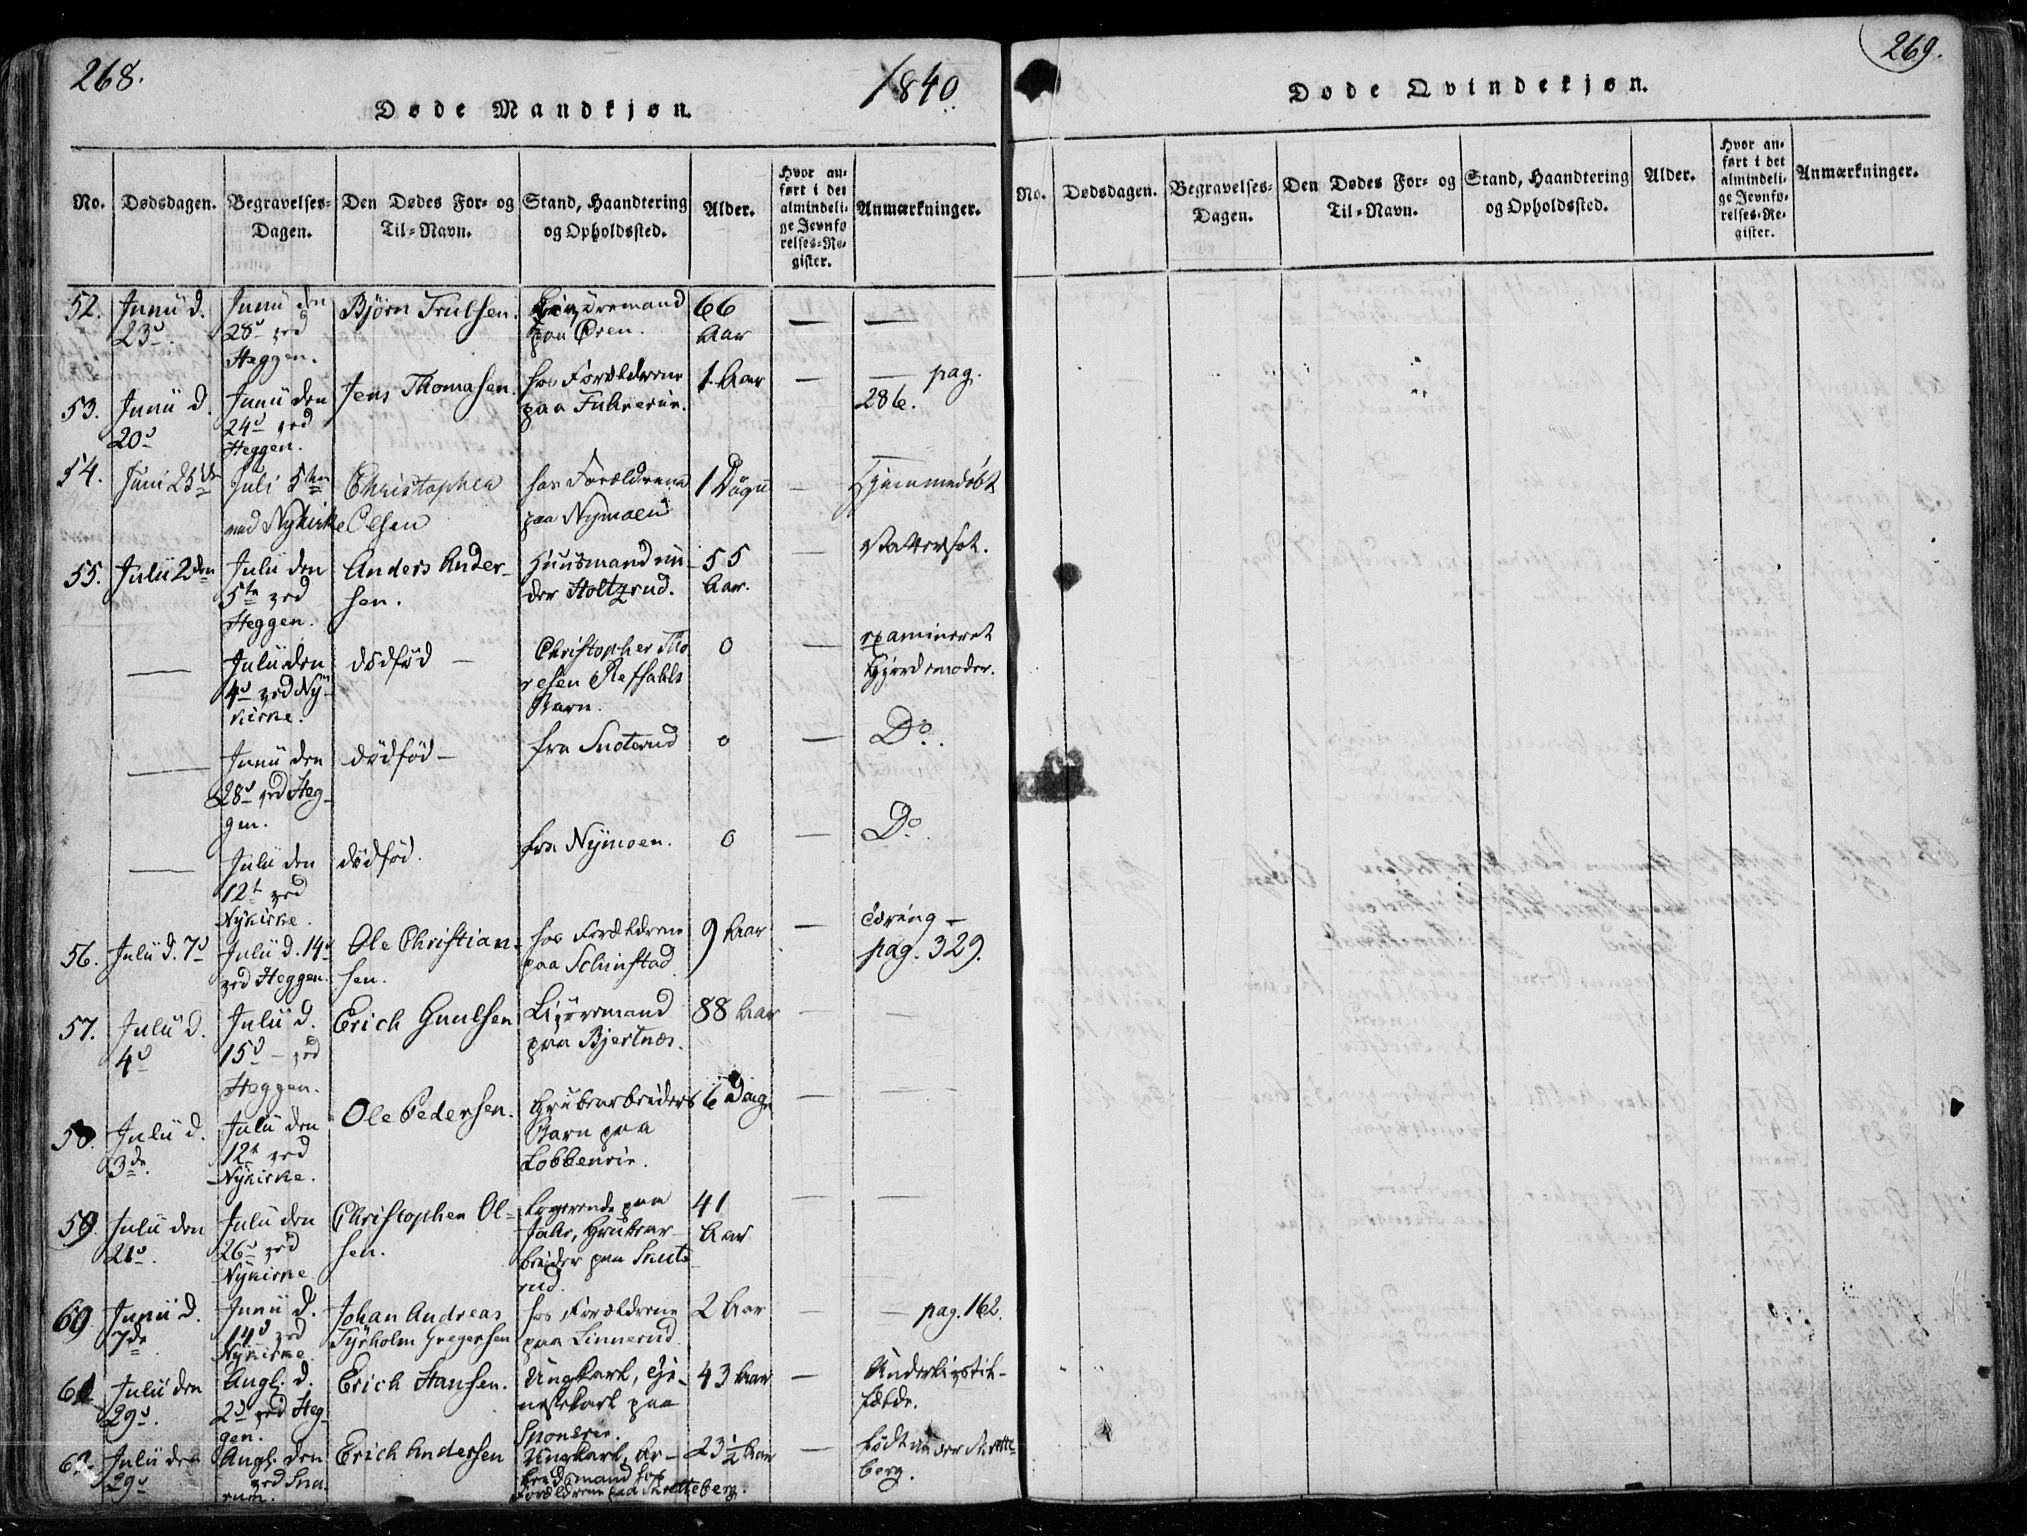 268.
1840.
Døde Mandkjøn.
No.
Dødsdagen.
Begravelses-
Dagen.
Den Dødes For- og
Til-Navn.
Stand, Haandtering
og Opholdssted.
Alder.
Hvor an-
ført i det
almindeli-
ge Jevnfø
relses-Re-
gister.
Anmærkninger.
52. Junii d. 23d
Junii den 28d ved Heggen.
Bjørn Trulsen.
paa Øren.
66 Aar
53. Junii d. 20d
Junii den 24d ved Heggen.
Jens Thomasen.
hos Forældrene paa
1 Aar
pag. 286.
54. Juni 25de
Juli 5ten ved Nykirke
Christopher Olsen
hos Forældrene paa Nymoen
1 Døgn
Hjemmedøbt
55. Julii 2den
Julii den 5te ved Heggen.
Anders Andersen.
Huusmand under Holtzrud.
55 Aar.
Vattersot.
Julii den 4d ved Nykirke.
dødfød
Christopher Thoresen Barn.
0
examineret Gjordemoder.
Junii den 28d ved Heggen.
dødfød
fra Snoterud
0
Do.
Julii den 12t ved Nykirke.
dødfød.
fra Nymoen.
0
Do.
56. Julii d. 7d
Julii d. 14d ved Heggen.
Ole Christiansen.
hos Forældrene paa
9 Aar
pag. 329.
57. Julii d. 4d
Julii d. 15d ved Heggen.
Erich Gunlsen
paa Bjertnæs.
88 Aar
58. Julii d. 3de
Julii den 12t ved Nykirke.
Ole Pedersen.
Grubearbeiders Barn paa
6 Dage
59. Julii den 21d
Julii den 26d ved Nykirke
Christopher Olsen.
Logerende paa Grubearbeider paa Snuterud.
41 Aar
60 Junii d. 7de
Junii d. 14d ved Nykirke
Johan Andreas Tyrholm Gregersen
hos Forældrene paa Linnerud
2 Aar
pag. 162.
61 Julii den 29d
Augl. d. 2d ved Heggen.
Erich Hansen.
Ungkarl, paa
43 Aar
62. Julii den 29d
Augl. den ved Snarum.
Erich Andersen
Ungkarl, Arbeidsmand hos Forældrene paa
23 1/2 Aar
269.
Døde Qvindekjøn.
No.
Dødsdagen.
Begravelses-
Dagen.
Den Dødes For- og
Til-Navn.
Stand, Haandtering
og Opholdssted.
Alder.
Hvor an-
ført i det
almindeli-
ge Jevnfø-
relses-Re-
gister.
Anmærkninger.